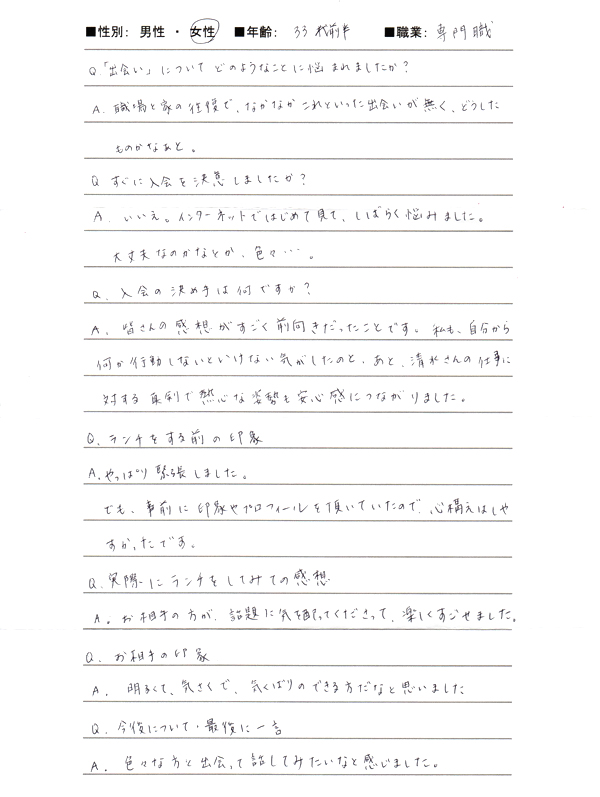 ■性別: 男性 ・ 女性 ■年齢: 33 代前半 ■職業: 専門職
Q.「出会い」について どのようなことに悩まれましたか？
A. 職場と家の往復で、なかなか これといった出会いが無く、どうした
ものかなあと。
Q すぐに入会を決意しましたか？
A. いいえ。インターネットではじめて見て、しばらく悩みました。
大丈夫なのかなとか、色々…。
Q. 入会の決め手は何ですか？
A. 皆さんの感想がすごく前向きだったことです。私も、自分から
何か行動しないといけない気がしたのと、あと、清水さんの仕事に
対する真剣で熱心な姿勢も安心感につながりました。
Q. ランチをする前の印象
A. やっぱり緊張しました。
でも、事前に印象やプロフィールを頂いていたので、心構えはしや
すかったです。
Q. 実際にランチをしてみての感想
A. お相手の方が、話題に気を配ってくださって、楽しくすごせました。
Q. お相手の印象
A. 明るくて、気さくで、気くばりのできる方だなと思いました
Q. 今後について・最後に一言
A. 色々な方と出会って話してみたいなと感じました。